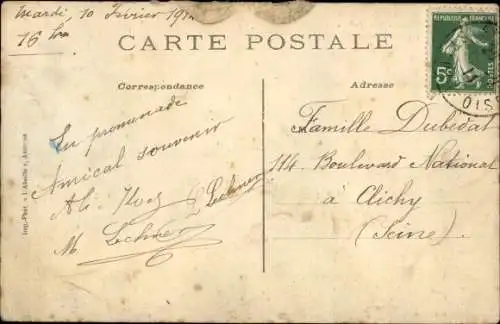 Mardi 10 Février 191
16 hrs
CARTE POSTALE
Correspondance
Adresse
En promenade
Amical souvenir
Lechner
M. Lechner
Famille Dubedat
114 Boulevard National
à Clichy
(Seine)
RÉPUBLIQUE FRANÇAISE
5c
POSTES
OIS